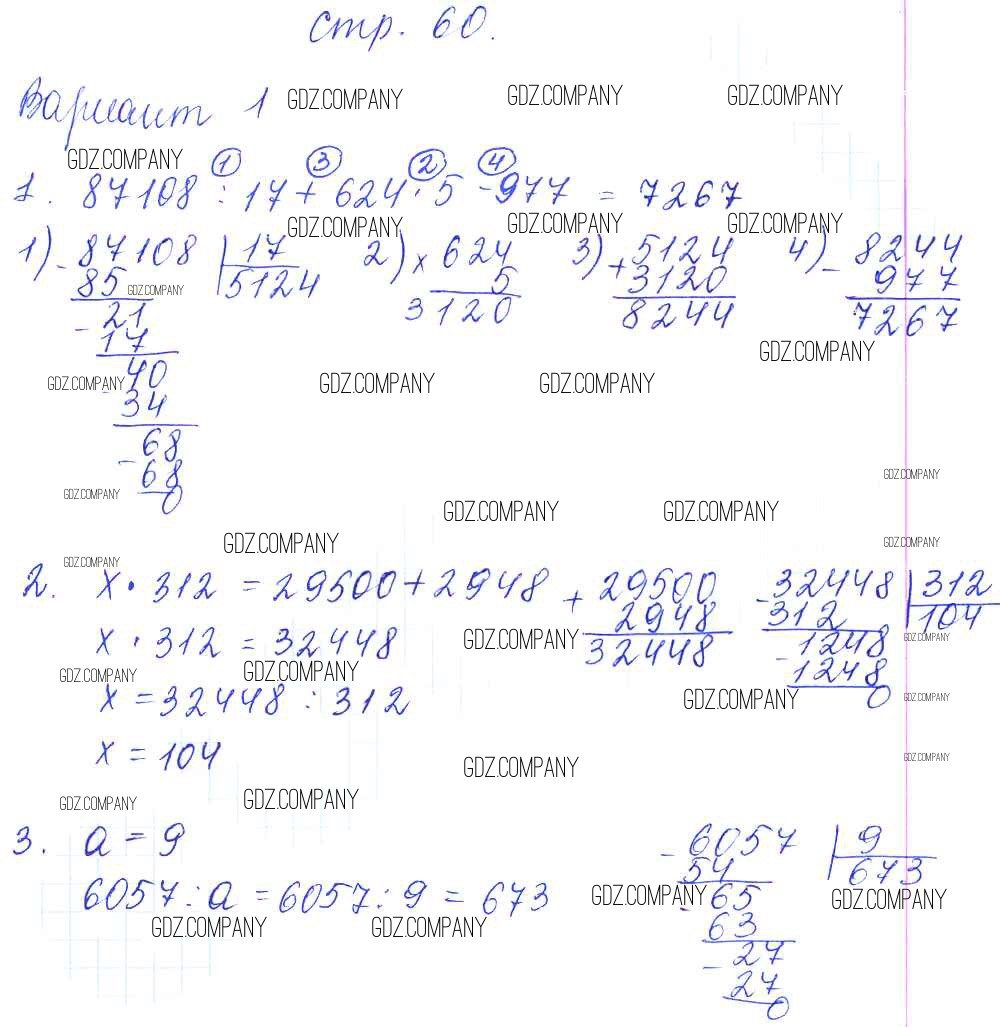 Стр. 60.
Вариант 1 GDZ.COMPANY GDZ.COMPANY GDZ.COMPANY
GDZ.COMPANY
① ③ ② ④
1. 87108 : 17 + 624 · 5 - 977 = 7267
GDZ.COMPANY GDZ.COMPANY GDZ.COMPANY
1) - 87108 | 17 2) × 624 3) + 5124 4) - 8244
85 5124 5 3120 977
GDZ.COMPANY
- 21 3120 8244 7267
17
GDZ.COMPANY
40
GDZ.COMPANY GDZ.COMPANY GDZ.COMPANY
- 34
68
- 68
GDZ.COMPANY
GDZ.COMPANY 0
GDZ.COMPANY GDZ.COMPANY
GDZ.COMPANY GDZ.COMPANY
GDZ.COMPANY
2. x · 312 = 29500 + 2948 + 29500 - 32448 | 312
2948 312 104
x · 312 = 32448 GDZ.COMPANY 32448 - 1248 GDZ.COMPANY
GDZ.COMPANY GDZ.COMPANY 1248
x = 32448 : 312 GDZ.COMPANY 0 GDZ.COMPANY
x = 104
GDZ.COMPANY GDZ.COMPANY
GDZ.COMPANY GDZ.COMPANY
3. a = 9 - 6057 | 9
54 673
6057 : a = 6057 : 9 = 673 GDZ.COMPANY - 65 GDZ.COMPANY
GDZ.COMPANY GDZ.COMPANY 63
- 27
27
0